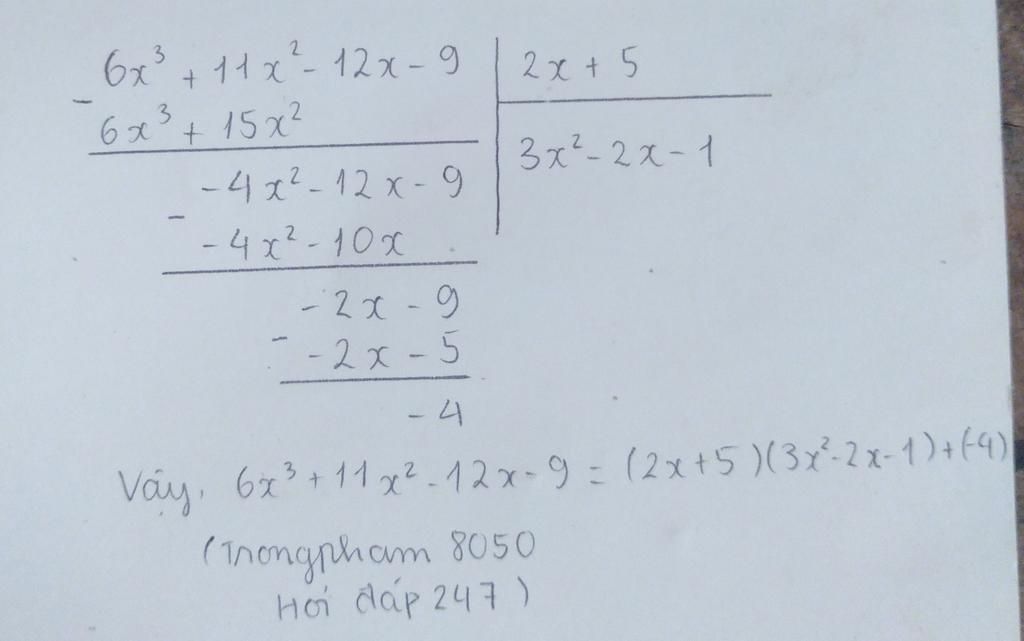 6x³ + 11x² - 12x - 9 | 2x + 5
- 6x³ + 15x² | 3x² - 2x - 1
-4x² - 12x - 9
- -4x² - 10x
-2x - 9
- -2x - 5
-4
Vậy, 6x³ + 11x² - 12x - 9 = (2x + 5)(3x² - 2x - 1) + (-4)
(Trongpham 8050
Hỏi đáp 247)